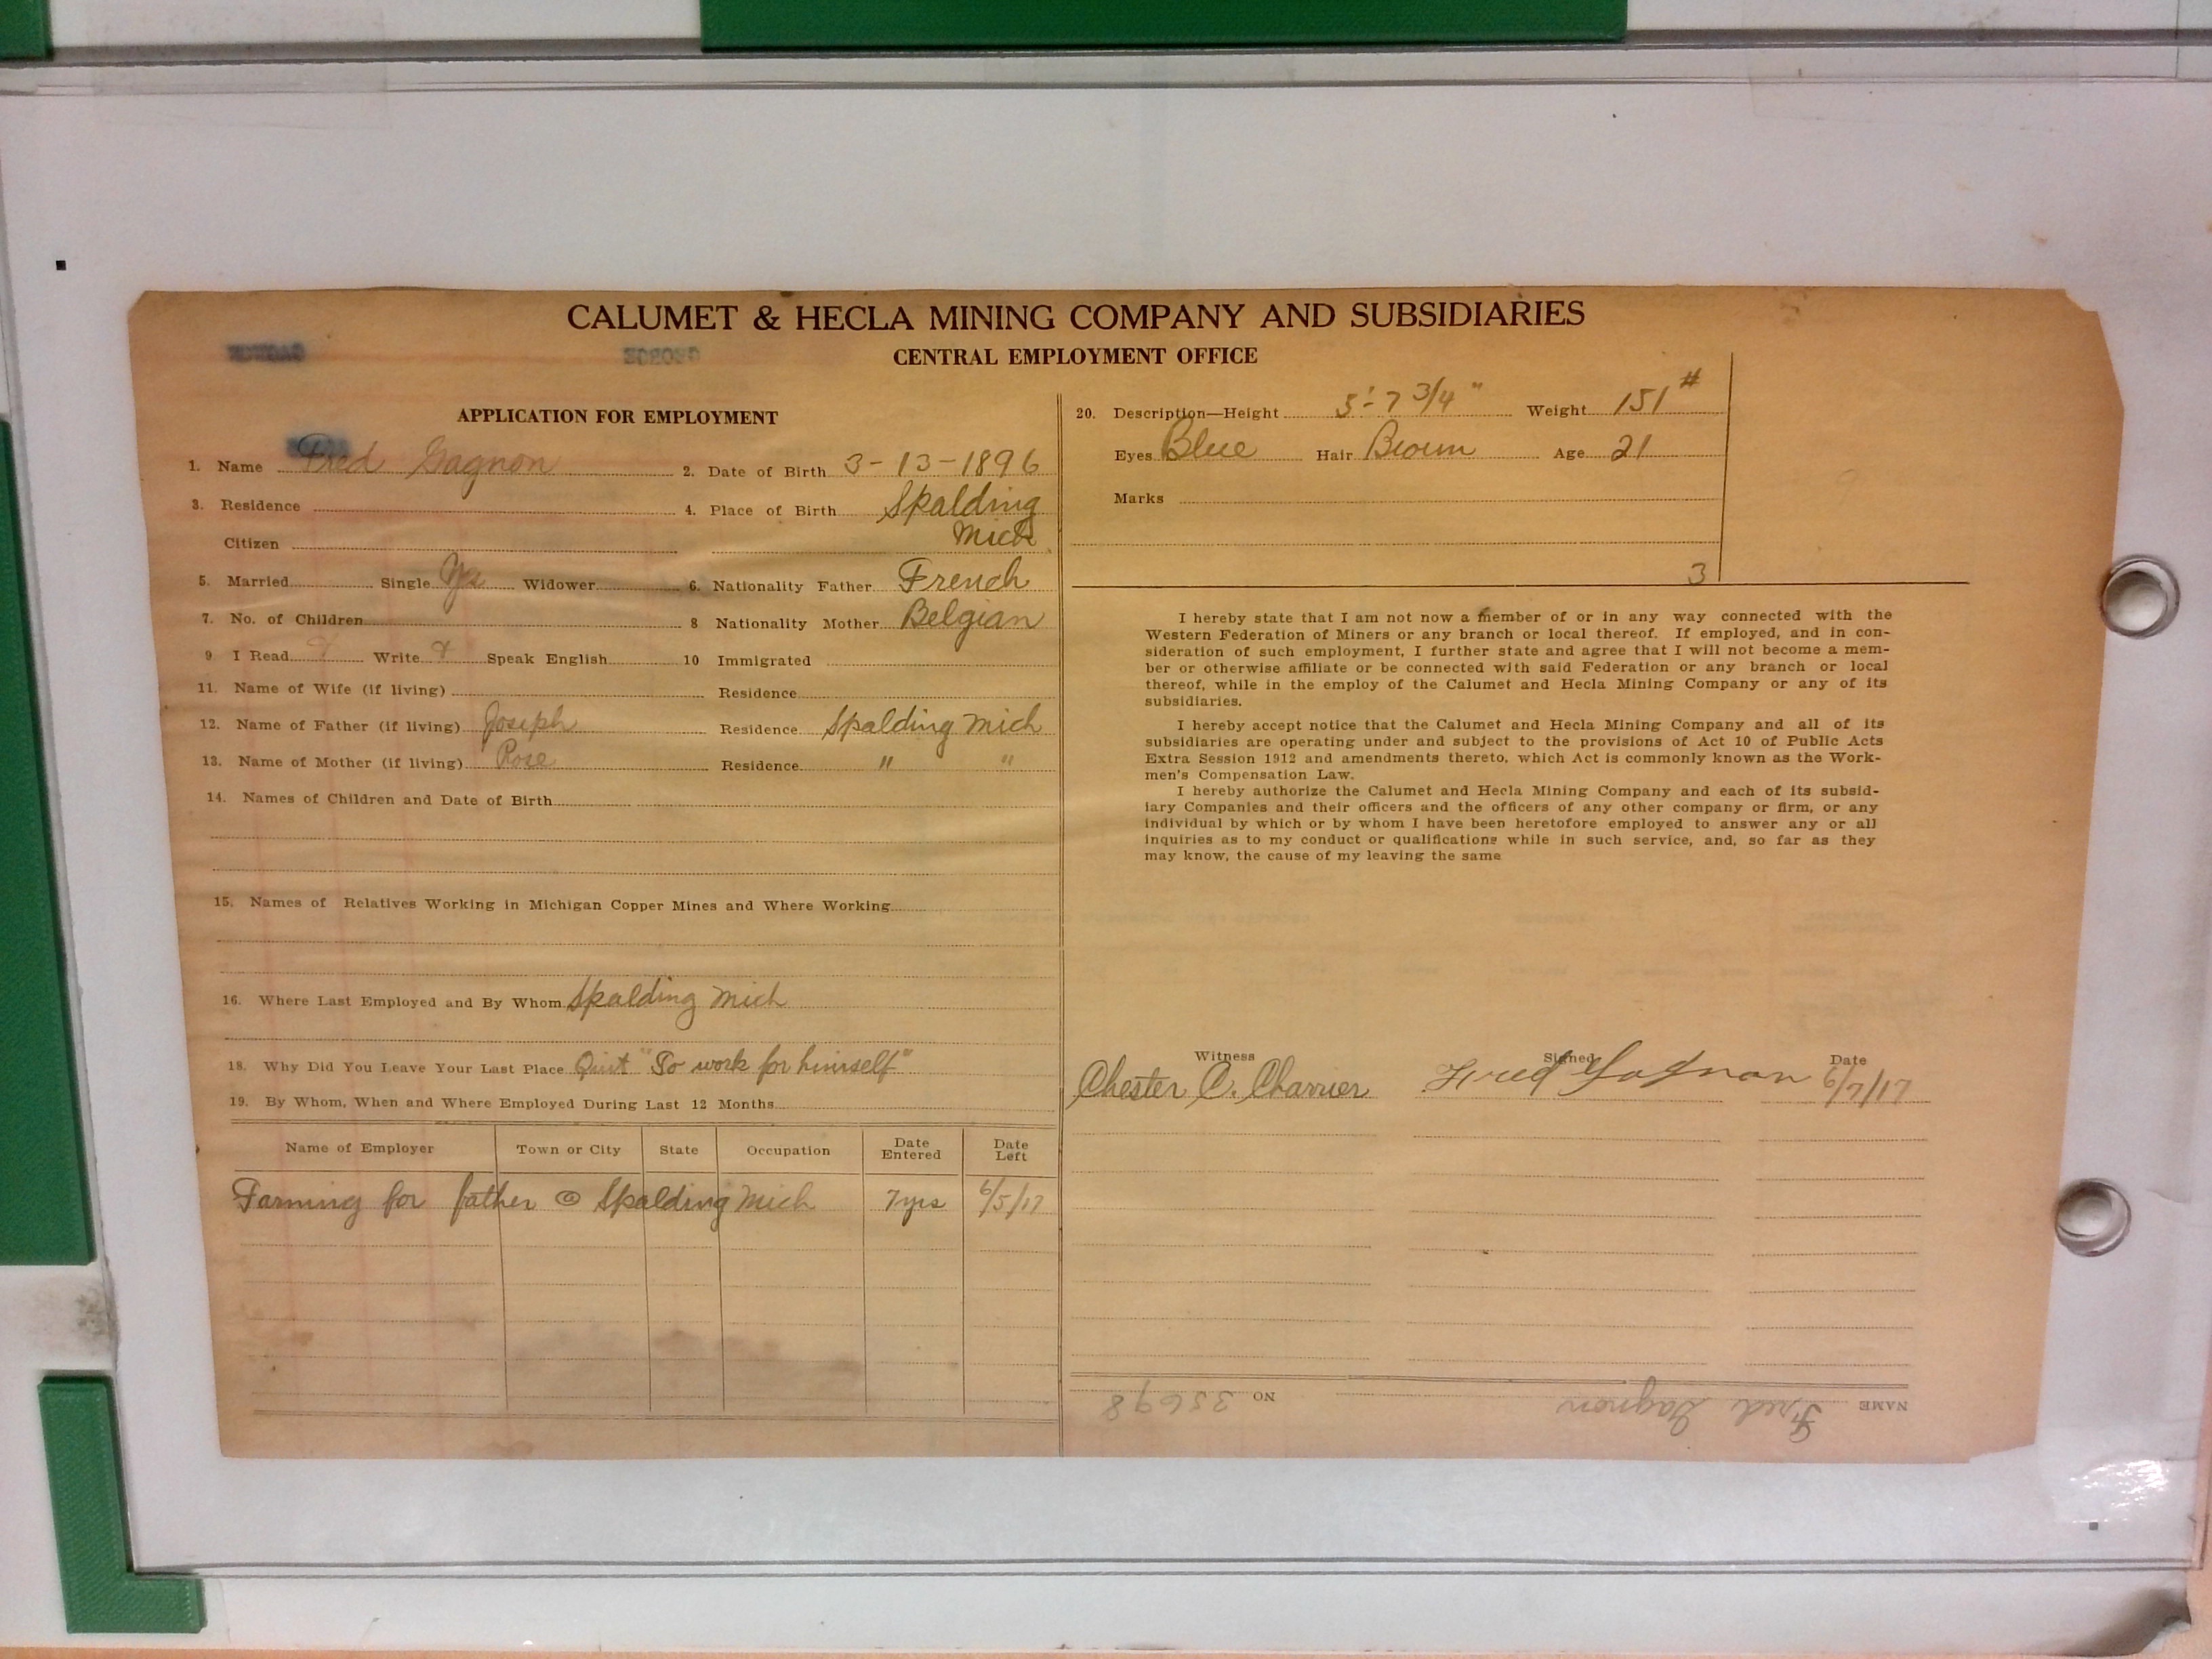 CALUMET & HECLA MINING COMPANY AND SUBSIDIARIES
CENTRAL EMPLOYMENT OFFICE
APPLICATION FOR EMPLOYMENT
1. Name Fred Gagnon 2. Date of Birth 3-13-1896
3. Residence 4. Place of Birth Spalding
Citizen Mich
5. Married Single Yes Widower 6. Nationality Father French
7. No. of Children 8 Nationality Mother Belgian
9 I Read Write Speak English 10 Immigrated
11. Name of Wife (if living) Residence
12. Name of Father (if living) Joseph Residence Spalding Mich
13. Name of Mother (if living) Rose Residence " "
14. Names of Children and Date of Birth
15. Names of Relatives Working in Michigan Copper Mines and Where Working
16. Where Last Employed and By Whom Spalding Mich
18. Why Did You Leave Your Last Place Quit "To work for himself"
19. By Whom, When and Where Employed During Last 12 Months
Name of Employer Town or City State Occupation Date Entered Date Left
Farming for father @ Spalding Mich 7yrs 6/5/17
20. Description—Height 5'-7 3/4" Weight 151#
Eyes Blue Hair Brown Age 21
Marks
3
I hereby state that I am not now a member of or in any way connected with the
Western Federation of Miners or any branch or local thereof. If employed, and in con-
sideration of such employment, I further state and agree that I will not become a mem-
ber or otherwise affiliate or be connected with said Federation or any branch or local
thereof, while in the employ of the Calumet and Hecla Mining Company or any of its
subsidiaries.
I hereby accept notice that the Calumet and Hecla Mining Company and all of its
subsidiaries are operating under and subject to the provisions of Act 10 of Public Acts
Extra Session 1912 and amendments thereto, which Act is commonly known as the Work-
men's Compensation Law.
I hereby authorize the Calumet and Hecla Mining Company and each of its subsid-
iary Companies and their officers and the officers of any other company or firm, or any
individual by which or by whom I have been heretofore employed to answer any or all
inquiries as to my conduct or qualifications while in such service, and, so far as they
may know, the cause of my leaving the same
Witness Signed Date
Chester C. Charrier Fred Gagnon 6/7/17
NAME Fred Gagnon NO 35698